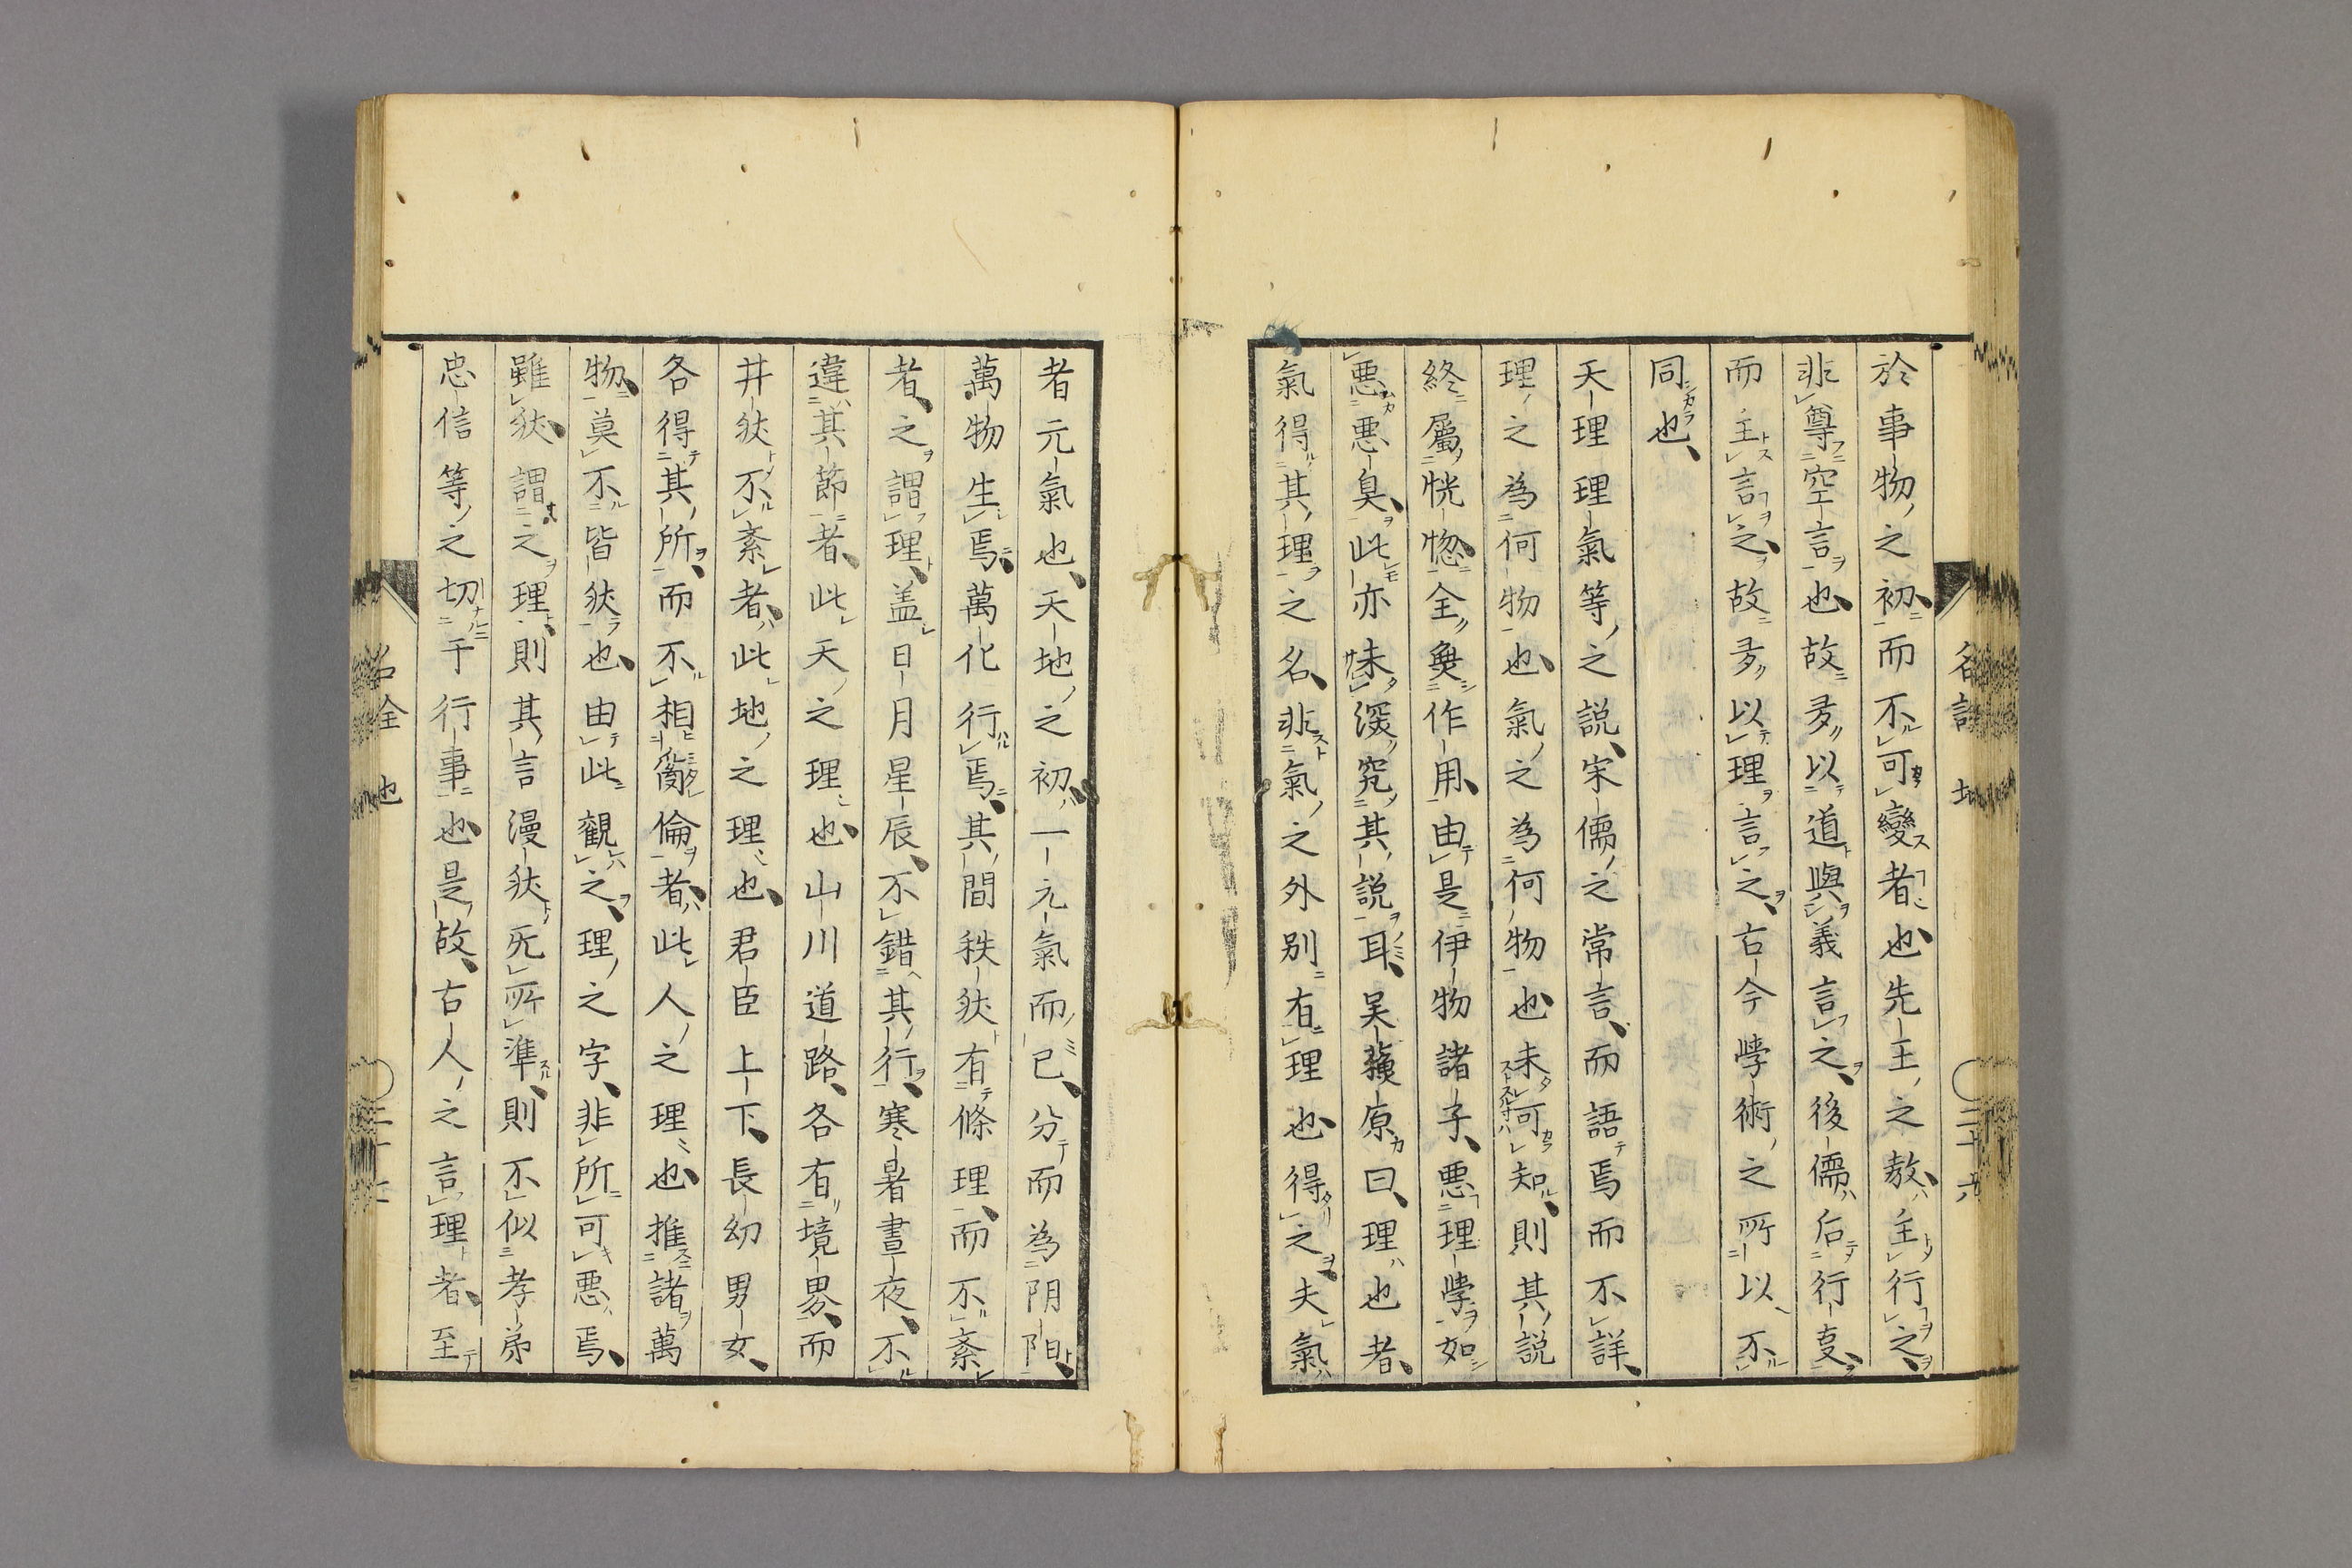 於事物之初而不可變者也先王之教主行之
非尊空言也故多以道與義言之後儒后行叓
而主言之故多以理言之古今學術之所以不
同也
天理理氣等之説宋儒之常言而語焉而不詳
理之為何物也氣之為何物也未可知則其説
終屬恍惚全無作用由是伊物諸子悪理學如
悪悪臭此亦未深究其説耳吴蘓原曰理也者
氣得其理之名非氣之外別有理也得之夫氣
者元氣也天地之初一元氣而已分而為阴阳
萬物生焉萬化行焉其間秩然有條理而不紊
者之謂理盖日月星辰不錯其行寒暑晝夜不
違其節者此天之理也山川道路各有境界而
井然不紊者此地之理也君臣上下長幼男女
各得其所而不相亂倫者此人之理也推諸萬
物莫不皆然也由此觀之理之字非所可悪焉
雖然謂之理則其言漫然无所準則不似孝弟
忠信等之切于行事也是故古人之言理者至